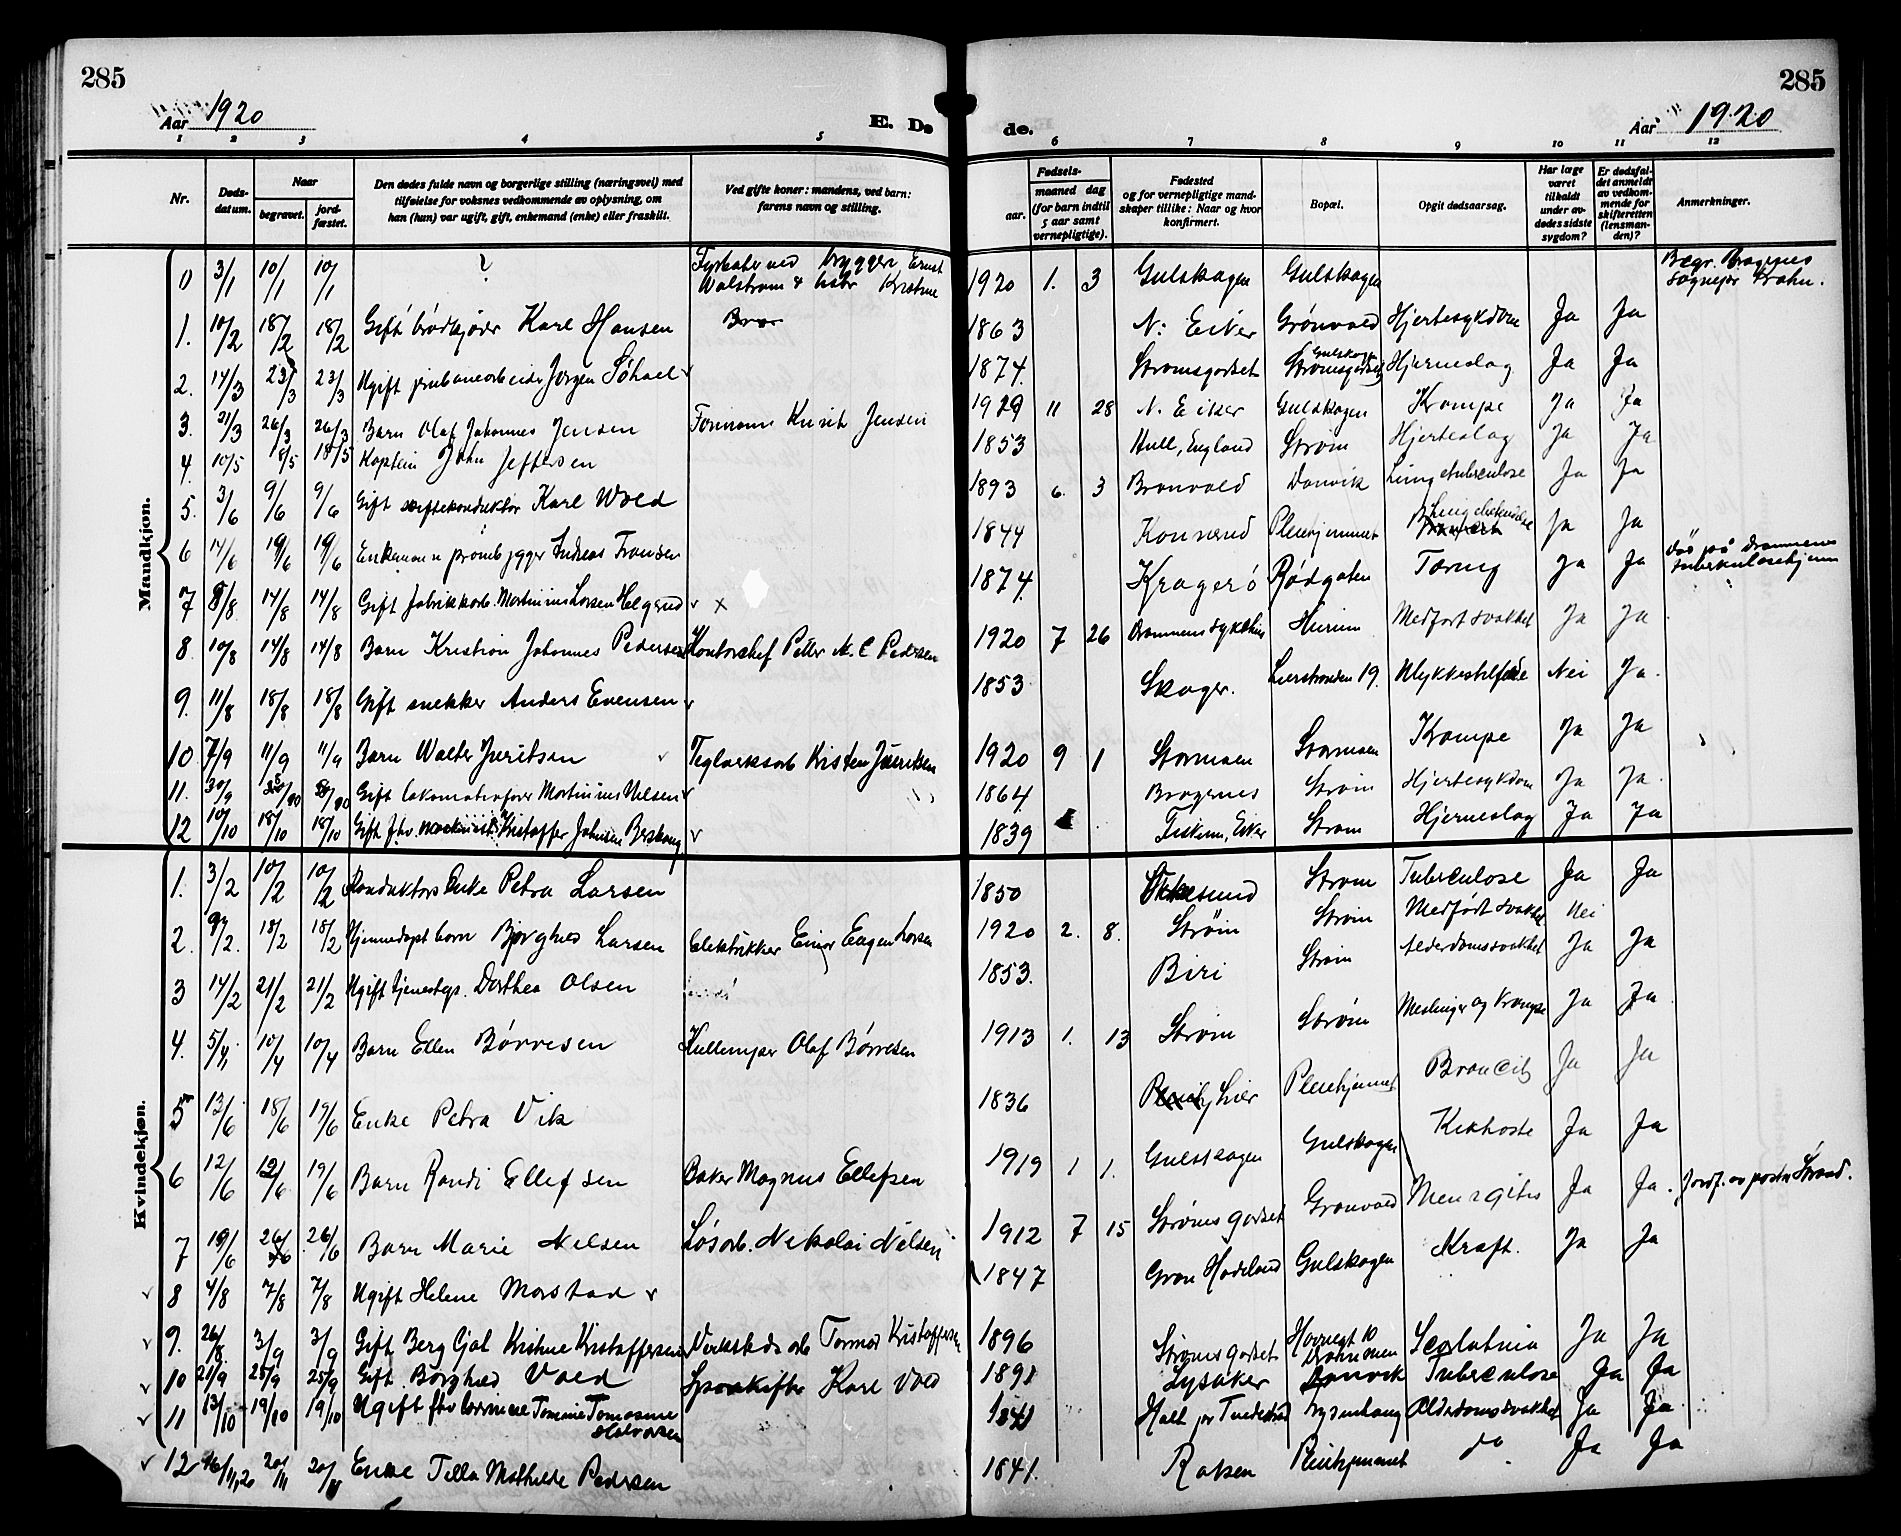 285
285
Aar 1920
E. Dø
de.
Aar 1920
1 2 3 4 5 6 7 8 9 10 11 12
Nr.
Døds-
datum.
Naar
begravet.
jord-
fæstet.
Den dødes fulde navn og borgerlige stilling (næringsvei) med
tilføielse for voksnes vedkommende av oplysning, om
han (hun) var ugift, gift, enkemand (enke) eller fraskilt.
Ved gifte koner: mandens, ved barn:
farens navn og stilling.
Fødsels-
aar.
maaned dag
(for barn indtil
5 aar samt
vernepligtige).
Fødested
og for vernepligtige mand-
skaper tillike: Naar og hvor
konfirmert.
Bopæl.
Opgit dødsaarsag.
Har læge
været
tilkaldt
under av-
dødes sidste
sygdom?
Er dødsfal-
det anmeldt
av vedkom-
mende for
skifteretten
(lensman-
den)?
Anmerkninger.
Mandkjøn.
0 3/1 10/1 10/1 ? Fyrbøter ved brygger Ernst
Walstrøm & hustr Kristine 1920 1. 3 Gulskogen Gulskogen Begr. Bragernes
Sognepr
1. 10/2 18/2 18/2 Gift brødkjører Karl Hansen 1863 N: Eiker Grønvold Hjertesykdom Ja Ja
2. 14/3 23/3 23/3 Ugift Jørgen 1874. Strømsgodset Gulskogen Strømsgodset Hjerneslag Ja Ja
3. 21/3 26/3 26/3 Barn Olaf Johannes Jensen Formann Jensen 1919 11 28 N. Eiker Gulskogen Krampe Ja Ja
4. 10/5 18/5 18/5 Kaptein John Jeffersen 1853 Hull, England Strøm Hjerteslag Ja Ja
5. 3/6 9/6 9/6 Gift Karl Wold 1893 6. 3 Danvik Lungetuberculose Ja Ja
6 14/6 19/6 19/6 Enkemann Andreas Fransen 1844 Konnerud Pleiehjemmet Ja Ja
7 8/8 14/8 14/8 Gift fabrikkarb. Martinius Larsen Helgerud x 1874. Kragerö Rødgaten Tæring Ja Ja Død på Drammens
tuberkulosehjem
8. 10/8 14/8 14/8 Barn Kristian Johannes Pedersen Kontorchef Peder M. C Pedersen 1920 7 26 Drammens sykehus Hurum Medfødt svakhet Ja Ja
9. 11/8 18/8 18/8 Gift snekker Anders Evensen 1853 Skoger. Lierstranden 19. Ulykkestilfælde Nei Ja.
10. 7/9 11/9 11/9 Barn Walter Juritsen Teglverksarb Kristen 1920 9 1 Stormoen Stormoen Krampe Ja Ja
11. 30/9 Gift lokomotivfører Martinius Nilsen 1864. Bragernes Strøm Hjertesykdom Ja Ja.
12 10/10 18/10 18/10 Gift fhv. maskinist Kristoffer Johnsen 1839 Fiskum, Eiker Strøm Hjerneslag Ja Ja
Kvindekjøn.
1. 3/2 10/2 10/2 Konduktørs Enke Petra Larsen 1850 Strøm Tuberculose Ja Ja
2. 9/2. 18/2 18/2 Hjemmedøpt barn Borghild Larsen Elektrikker Einar Eugen Larsen 1920 2. 8. Strøm Strøm Medfødt svakhet Nei
3 14/2 21/2 21/2 Ugift tjenestep. Dorthea Olsen 1853. Biri Strøm Alderdomssvakhet Ja Ja
4. 5/4 10/4 10/4 Barn Ellen Børresen Olaf Børresen 1913 1. 13 Strøm Strøm Meslinger og krampe Ja Ja
5 13/6 18/6 19/6 Enke Petra Vik 1836 Lier Pleiehjemmet Broncit Ja Ja
6 12/6 19/6 19/6 Barn Randi Ellefsen Baker Magnus Ellefsen 1919 1 1. Gulskogen Gulskogen Kikhoste Ja Ja
7 19/6 26/6 26/6 Barn Marie Nilsen Løsarb. Nikolai Nilsen 1912 7 15 Strømsgodset Grønvold Meningitis Ja Ja. Jordf. av pastor Strand.
8 4/8 7/8 7/8 Ugift Helene Morstad 1847 Gran Hadeland Gulskogen Kræft. Ja Ja
9. 26/8. 3/9 3/9 Gift Berg Gjøl Kristine Kristoffersen Verkstedsarb Tormod Kristoffersen 1896 Strømsgodset Havnegt 10
Drammen Scarlatina Ja Ja
10 21/9 25/9 25/9 Gift Borghild Vold Sporskifter Karl Vold 1891 Lysaker Danvik Tuberculose Ja Ja
11 13/10 19/10 19/10 Ugift fhv Tomine Tomasine
Halvorsen 1841 Holt pr Tvedestrand Alderdomssvakhet Ja Ja
12 16/11 20 20/11 20/11 Enke Tilla Mathilde Pedersen 1841. Pleiehjemmet do Ja Ja